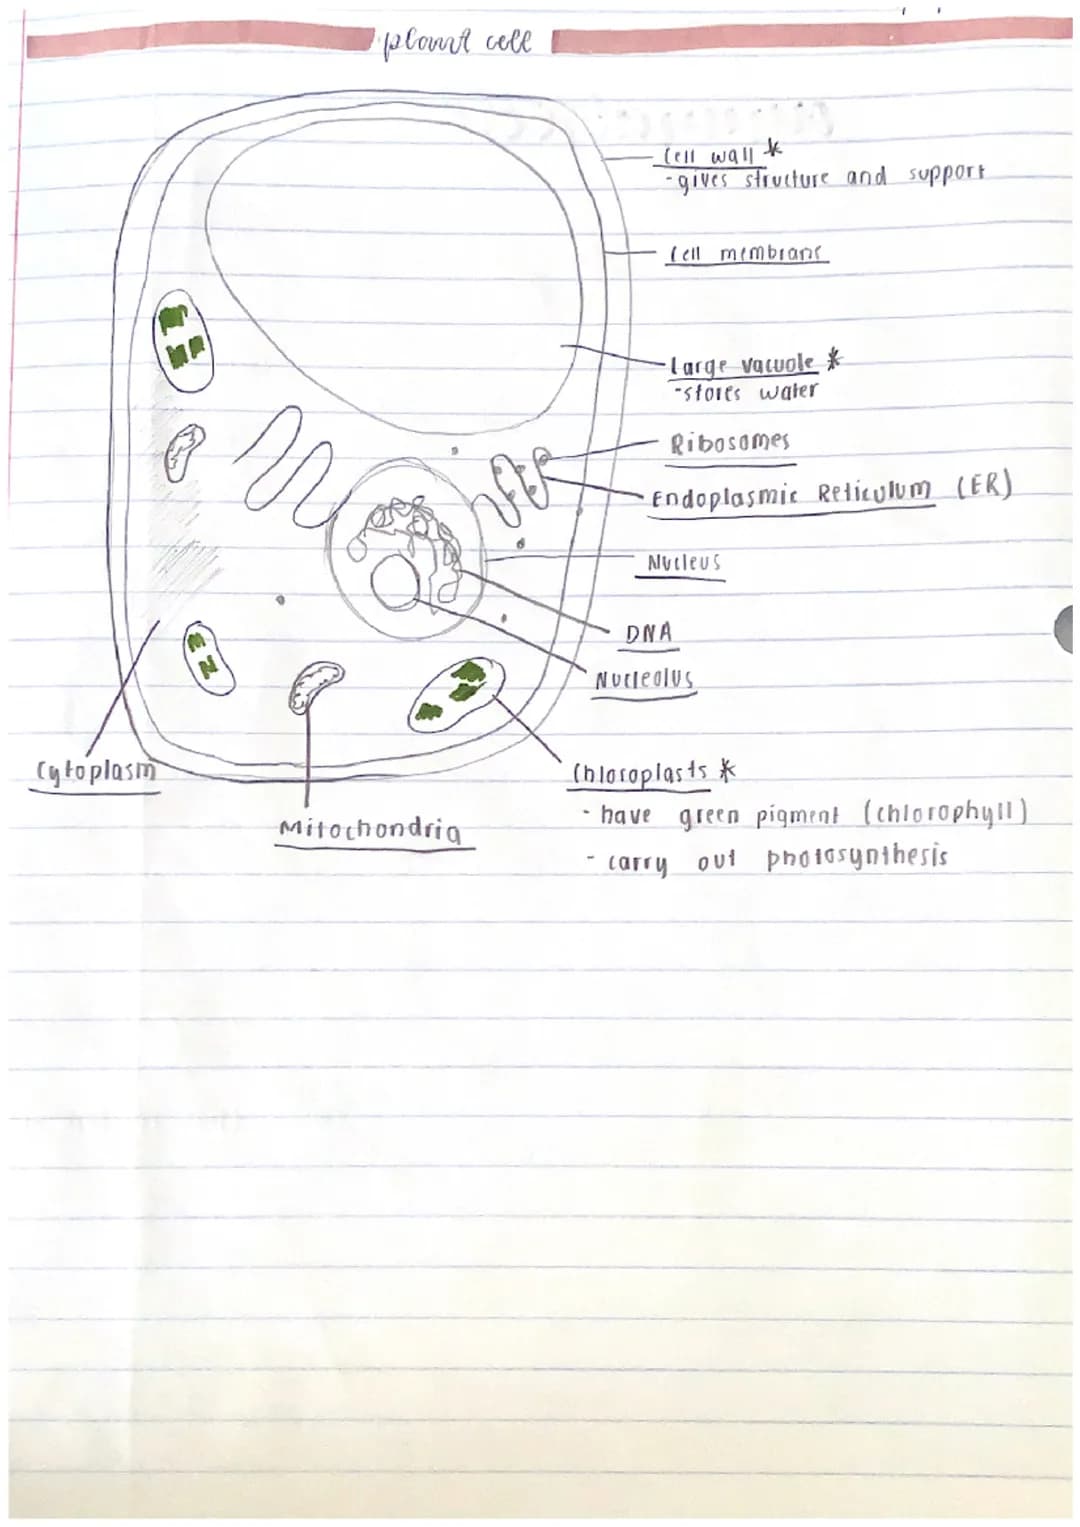 plant cell
Cell wall *
-gives structure and support
Cell membrane
Large vacuole *
-stores water
Ribosomes
Endoplasmic Reticulum (ER)
Nucleus
DNA
Nucleolus
Cytoplasm
Chloroplasts *
- have green pigment (chlorophyll)
Mitochondria
- carry out photosynthesis